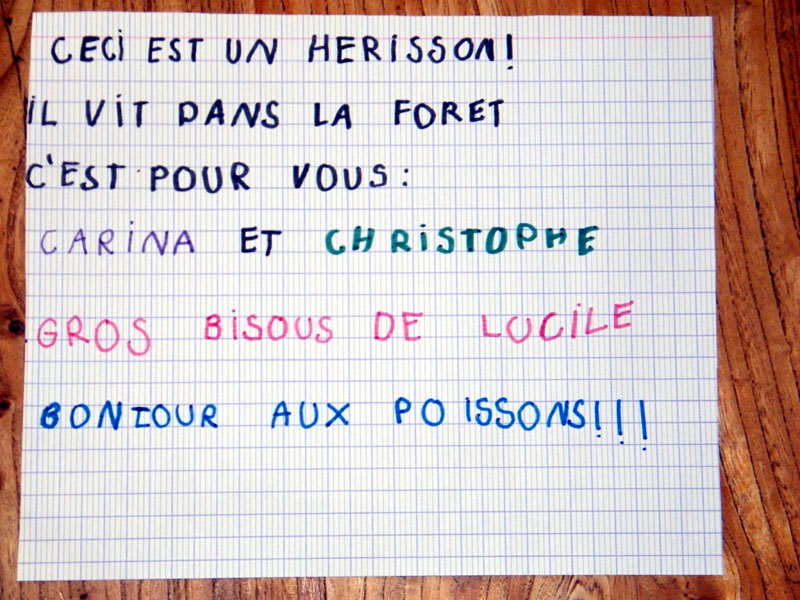 CECI EST UN HERISSON!
IL VIT DANS LA FORET
C'EST POUR VOUS:
CARINA ET CHRISTOPHE
GROS BISOUS DE LUCILE
BONJOUR AUX POISSONS!!!